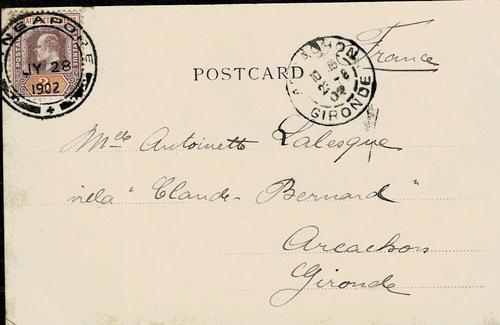 SINGAPORE
JY 28
1902
POSTAGE
POSTCARD
ARCACHON
GIRONDE
France
Melle Antoinette Lalesque
villa "Claude-Bernard"
Arcachon
Gironde